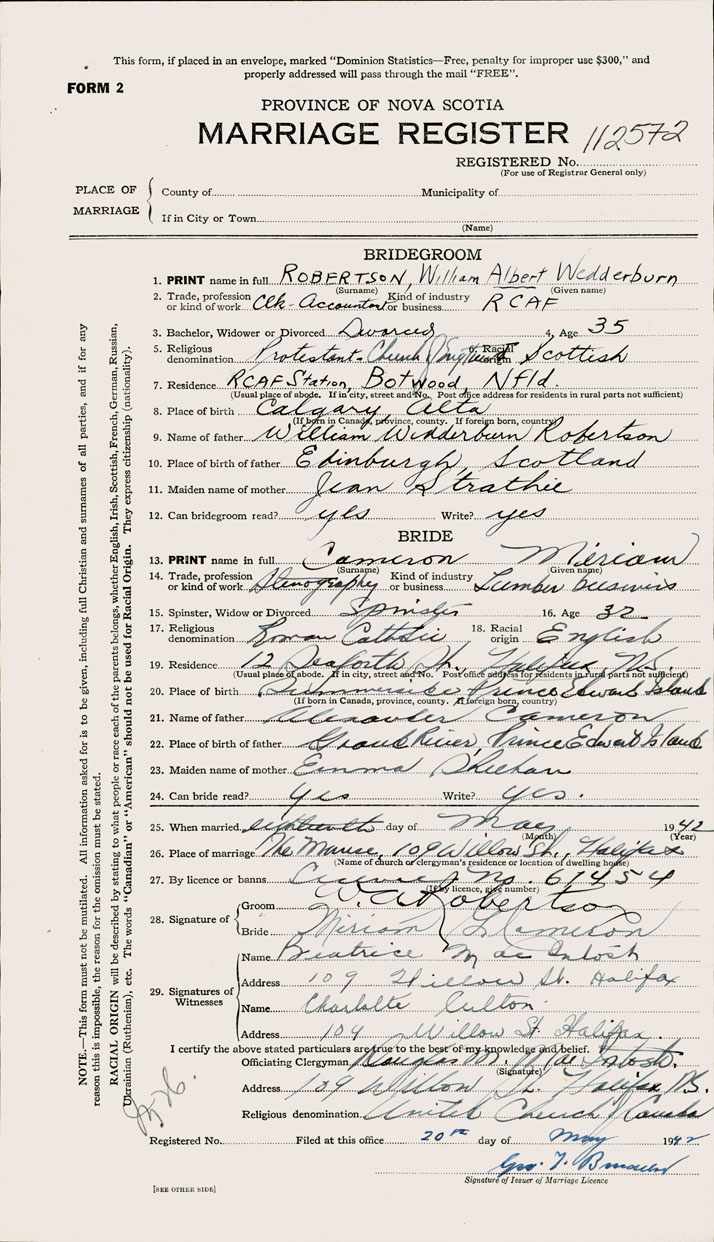 This form, if placed in an envelope, marked "Dominion Statistics—Free, penalty for improper use $300," and
properly addressed will pass through the mail "FREE".
FORM 2
PROVINCE OF NOVA SCOTIA
MARRIAGE REGISTER 112572
REGISTERED No.
(For use of Registrar General only)
PLACE OF MARRIAGE
County of Municipality of
If in City or Town
(Name)
BRIDEGROOM
1. PRINT name in full ROBERTSON, William Albert Wedderburn
(Surname) (Given name)
2. Trade, profession or kind of work Clk-Accountant Kind of industry or business RCAF
3. Bachelor, Widower or Divorced Divorced 4. Age 35
5. Religious denomination Protestant-Church England 6. Racial Scottish
7. Residence RCAF Station, Botwood, Nfld.
(Usual place of abode. If in city, street and No. Post office address for residents in rural parts not sufficient)
8. Place of birth Calgary Alta
(If born in Canada, province, county. If foreign born, country)
9. Name of father William Wedderburn Robertson
10. Place of birth of father Edinburgh, Scotland
11. Maiden name of mother Jean Strathie
12. Can bridegroom read? yes Write? yes
BRIDE
13. PRINT name in full Cameron Miriam
(Surname) (Given name)
14. Trade, profession or kind of work Stenography Kind of industry or business Lumber business
15. Spinster, Widow or Divorced Spinster 16. Age 32
17. Religious denomination Roman Catholic 18. Racial origin English
19. Residence 12 Seaforth St., Halifax N.S.
(Usual place of abode. If in city, street and No. Post office address for residents in rural parts not sufficient)
20. Place of birth Summerside Prince Edward Island
(If born in Canada, province, county. If foreign born, country)
21. Name of father Alexander Cameron
22. Place of birth of father Grand River, Prince Edward Island
23. Maiden name of mother Emma Sheehan
24. Can bride read? yes Write? yes.
25. When married eighteenth day of May 1942
(Month) (Year)
26. Place of marriage The Manse, 109 Willow St., Halifax
(Name of church or clergyman's residence or location of dwelling house)
27. By licence or banns No. 61454
(If by licence, give number)
28. Signature of
Groom Robertson
Bride Miriam Cameron
29. Signatures of Witnesses
Name Beatrice MacIntosh
Address 109 Willow St. Halifax
Name Charlotte Culton
Address 109 Willow St Halifax.
I certify the above stated particulars are true to the best of my knowledge and belief.
Officiating Clergyman Douglas M. MacIntosh.
(Signature)
Address 109 Willow St. Halifax N.S.
Religious denomination United Church Canada
Registered No. Filed at this office 20th day of May 1942
Geo. T.
Signature of Issuer of Marriage Licence
[SEE OTHER SIDE]
NOTE.—This form must not be mutilated. All information asked for is to be given, including full Christian and surnames of all parties, and if for any
reason this is impossible, the reason for the omission must be stated.
RACIAL ORIGIN will be described by stating to what people or race each of the parents belongs, whether English, Irish, Scottish, French, German, Russian,
Ukrainian (Ruthenian), etc. The words "Canadian" or "American" should not be used for Racial Origin. They express citizenship (nationality).